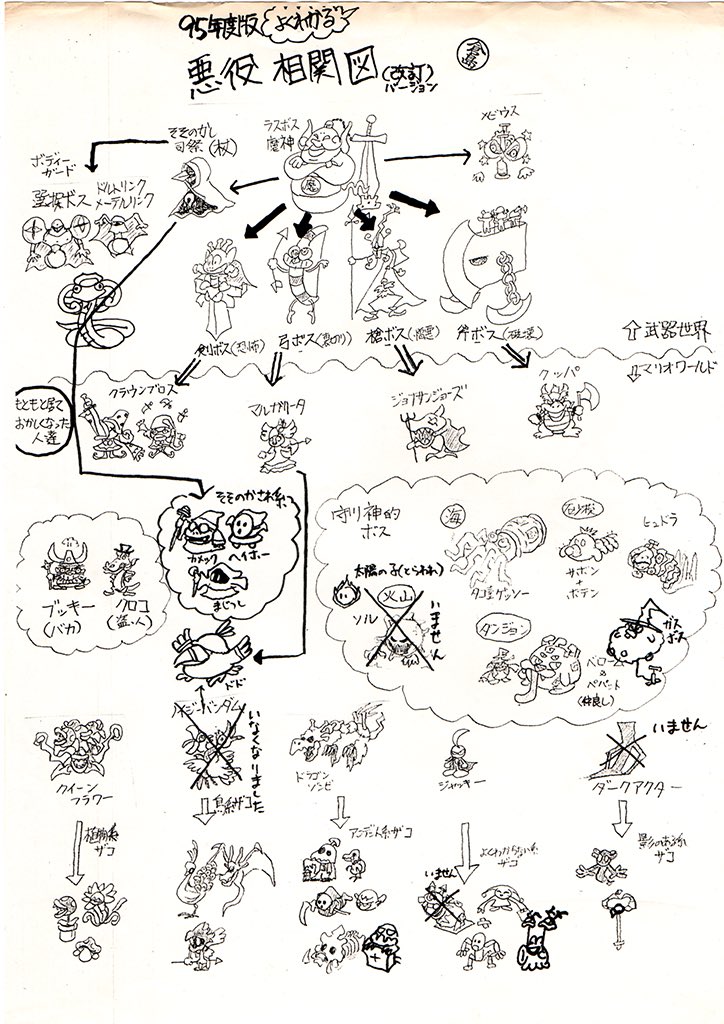 95年度版 よくわかる
悪役 相関図 (改訂)
バージョン
そそのかし
司祭(杖)
ラスボス
魔神
メビウス
ボディー
ガード
聖堤ボス
ドルトリンク
メーテルリンク
剣ボス(恐怖)
弓ボス(裏切り)
槍ボス
斧ボス
⇧武器世界
⇩マリオワールド
もともと居て
おかしくなった
人達
クラウンブロス
マルガリータ
ジョナサンジョーズ
クッパ
そそのかされ系
カメック
ヘイホー
まじっし
ブッキー
(バカ)
クロコ
(盗い人)
ドド
守り神的
ボス
海
タコ壺ゲッソー
砂漠
サボン
+
ボテン
ヒュドラ
太陽の子(とらわれ)
ソル
火山
いません
ダンジョン
ベローム
&
ペパート
(仲良し)
ガス
ボス
クイーン
フラワー
植物系
ザコ
ネジーバンダム
いなくなりました
鳥系ザコ
ドラゴン
ゾンビ
アンデット系ザコ
ジャッキー
よくわからない系
ザコ
いません
いません
ダークアクター
影のある系
ザコ